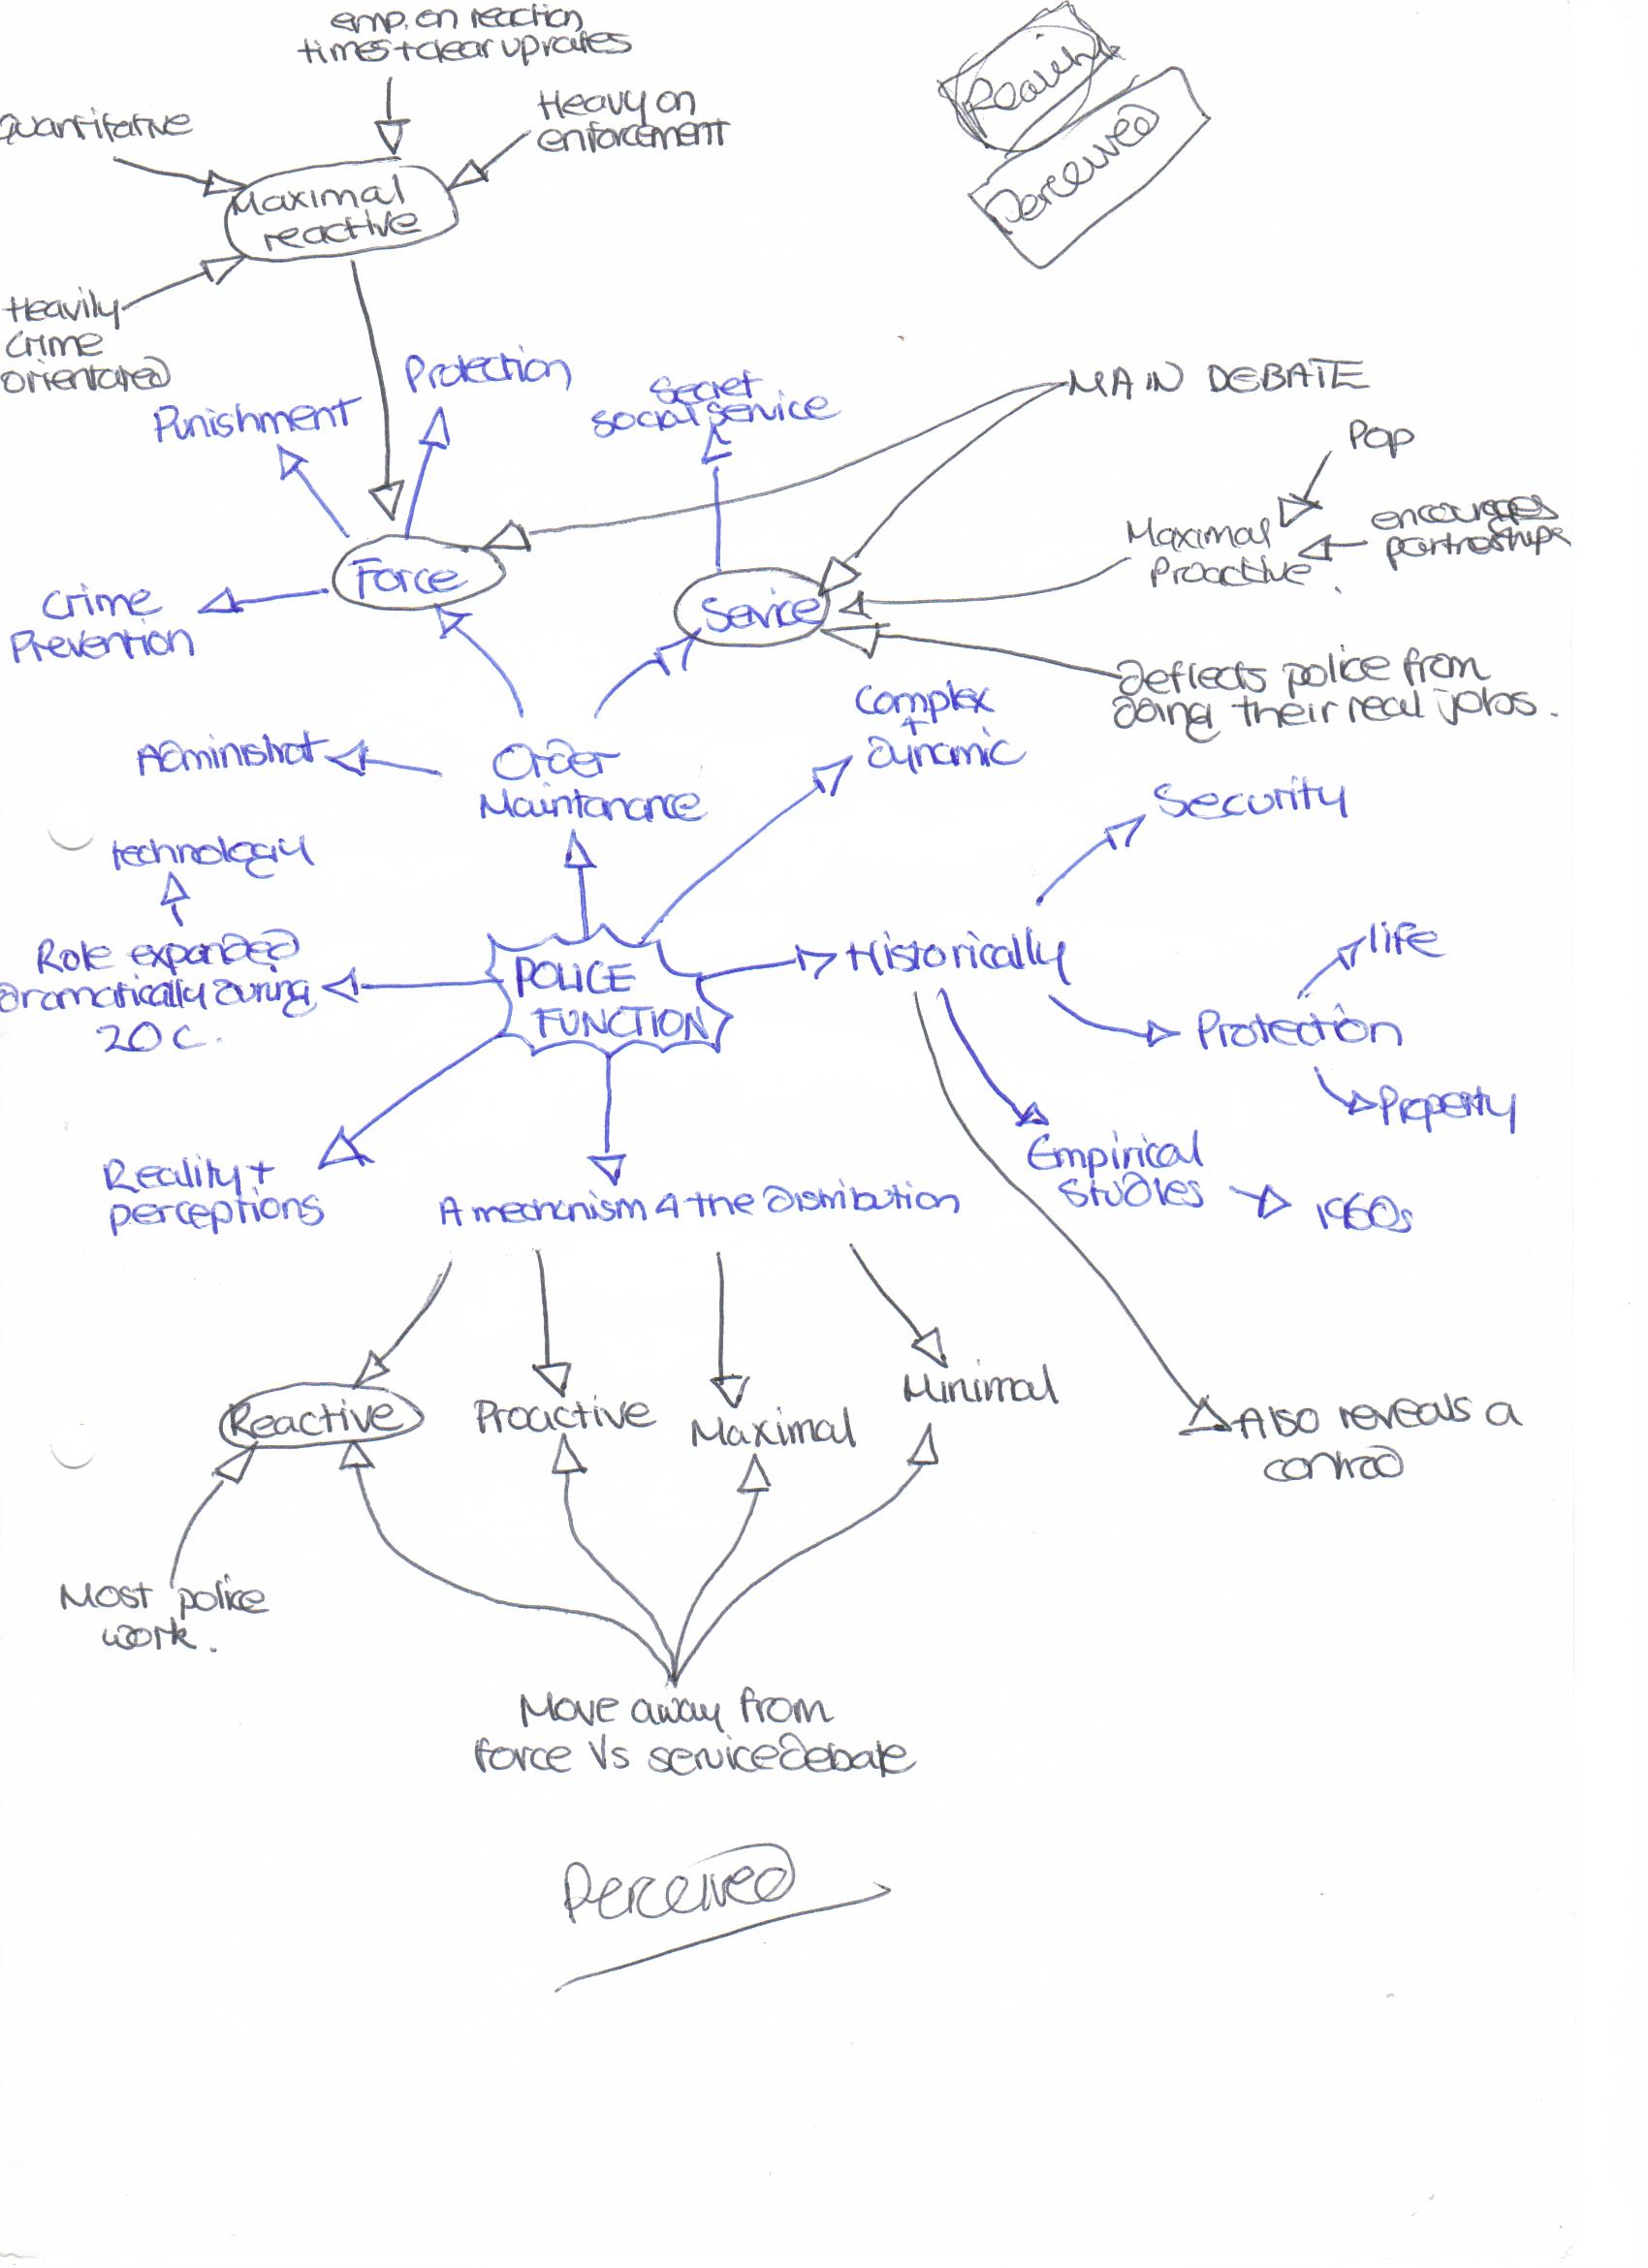 emp. on reaction
times + clear up rates
Quantitative
Heavy on
enforcement
Maximal
reactive
Perceived
Heavily
crime
orientated
Punishment
Protection
Secret
social service
MAIN DEBATE
Pop
Maximal
Proactive.
encourages
partnerships
Force
Service
Crime
Prevention
Deflects police from
doing their real jobs.
Administrat
Order
Maintanance
Complex
+
dynamic
Security
technology
Role expanded
dramatically during
20 C.
POLICE
FUNCTION
Historically
life
Protection
Property
Empirical
Studies
1960s
Reality +
perceptions
A mechanism 4 the distribution
Reactive
Proactive
Maximal
Minimal
Also reveals a
contrad
Most police
work.
Move away from
force Vs service debate
Perceived